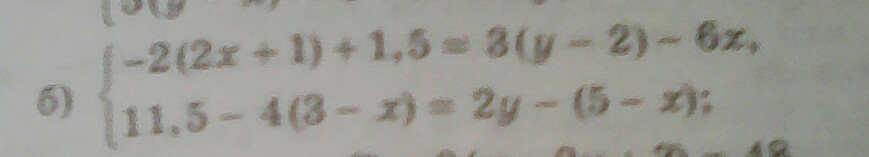 б) { -2(2x + 1) + 1,5 = 3(y - 2) - 6x,
11,5 - 4(3 - x) = 2y - (5 - x);